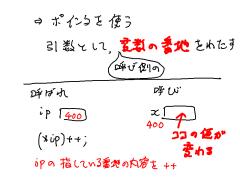 ⇒ ポインタを使う
引数として, 変数の番地をわたす
呼び側の
呼ばれ 呼び
ip 400 x
400 ココの値が
変わる
(*ip)++;
ipの指している番地の内容を++